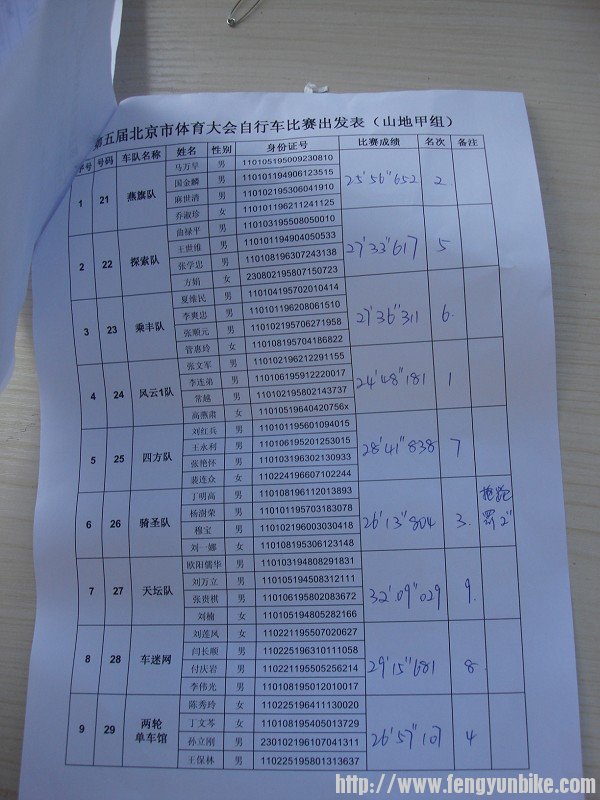 第五届北京市体育大会自行车比赛出发表（山地甲组）
序号 号码 车队名称 姓名 性别 身份证号 比赛成绩 名次 备注
1 21 燕旗队 25'56"652 2
马万早 男 110105195009230810
国金麟 男 110101194906123515
麻世清 男 110102195306041910
乔淑珍 女 110101196211241125
2 22 探索队 27'33"617 5
曲禄平 男 110103195508050010
王世维 男 110101194904050533
张学忠 男 110108196307243138
方娟 女 230802195807150723
3 23 乘丰队 27'36"311 6.
夏维民 男 110104195702010414
李爽忠 男 110101196208061510
张顺元 男 110102195706271958
管惠玲 女 110108195704186822
4 24 风云1队 24'48"181 1
张文军 男 110102196212291155
李连弟 男 110106195912220017
常越 男 110102195802143737
高燕肃 女 11010519640420756x
5 25 四方队 28'41"838 7
刘红兵 男 110101195601094015
王永利 男 110106195201253015
张艳怀 男 110103196302130933
裴连众 女 110224196607102244
6 26 骑圣队 26'13"804 3. 抢跑罚2"
丁明高 男 110108196112013893
杨澍荣 男 110101195703183078
穆宝 男 110102196003030418
刘一娜 女 110108195306123148
7 27 天坛队 32'09"029 9.
欧阳儒华 男 110103194808291831
刘万立 男 110105194508312111
张贵祺 男 110106195802083672
刘楠 女 110105194805282166
8 28 车迷网 29'15"681 8
刘莲凤 女 110221195507020627
闫长顺 男 110225196310111058
付庆岩 男 110221195505256214
李伟光 男 110108195012010017
9 29 两轮单车馆 26'57"107 4
陈秀玲 女 110225196411130020
丁文芩 女 110108195405013729
孙立刚 男 230102196107041311
王保林 男 110225195801313637
http://www.fengyunbike.com/